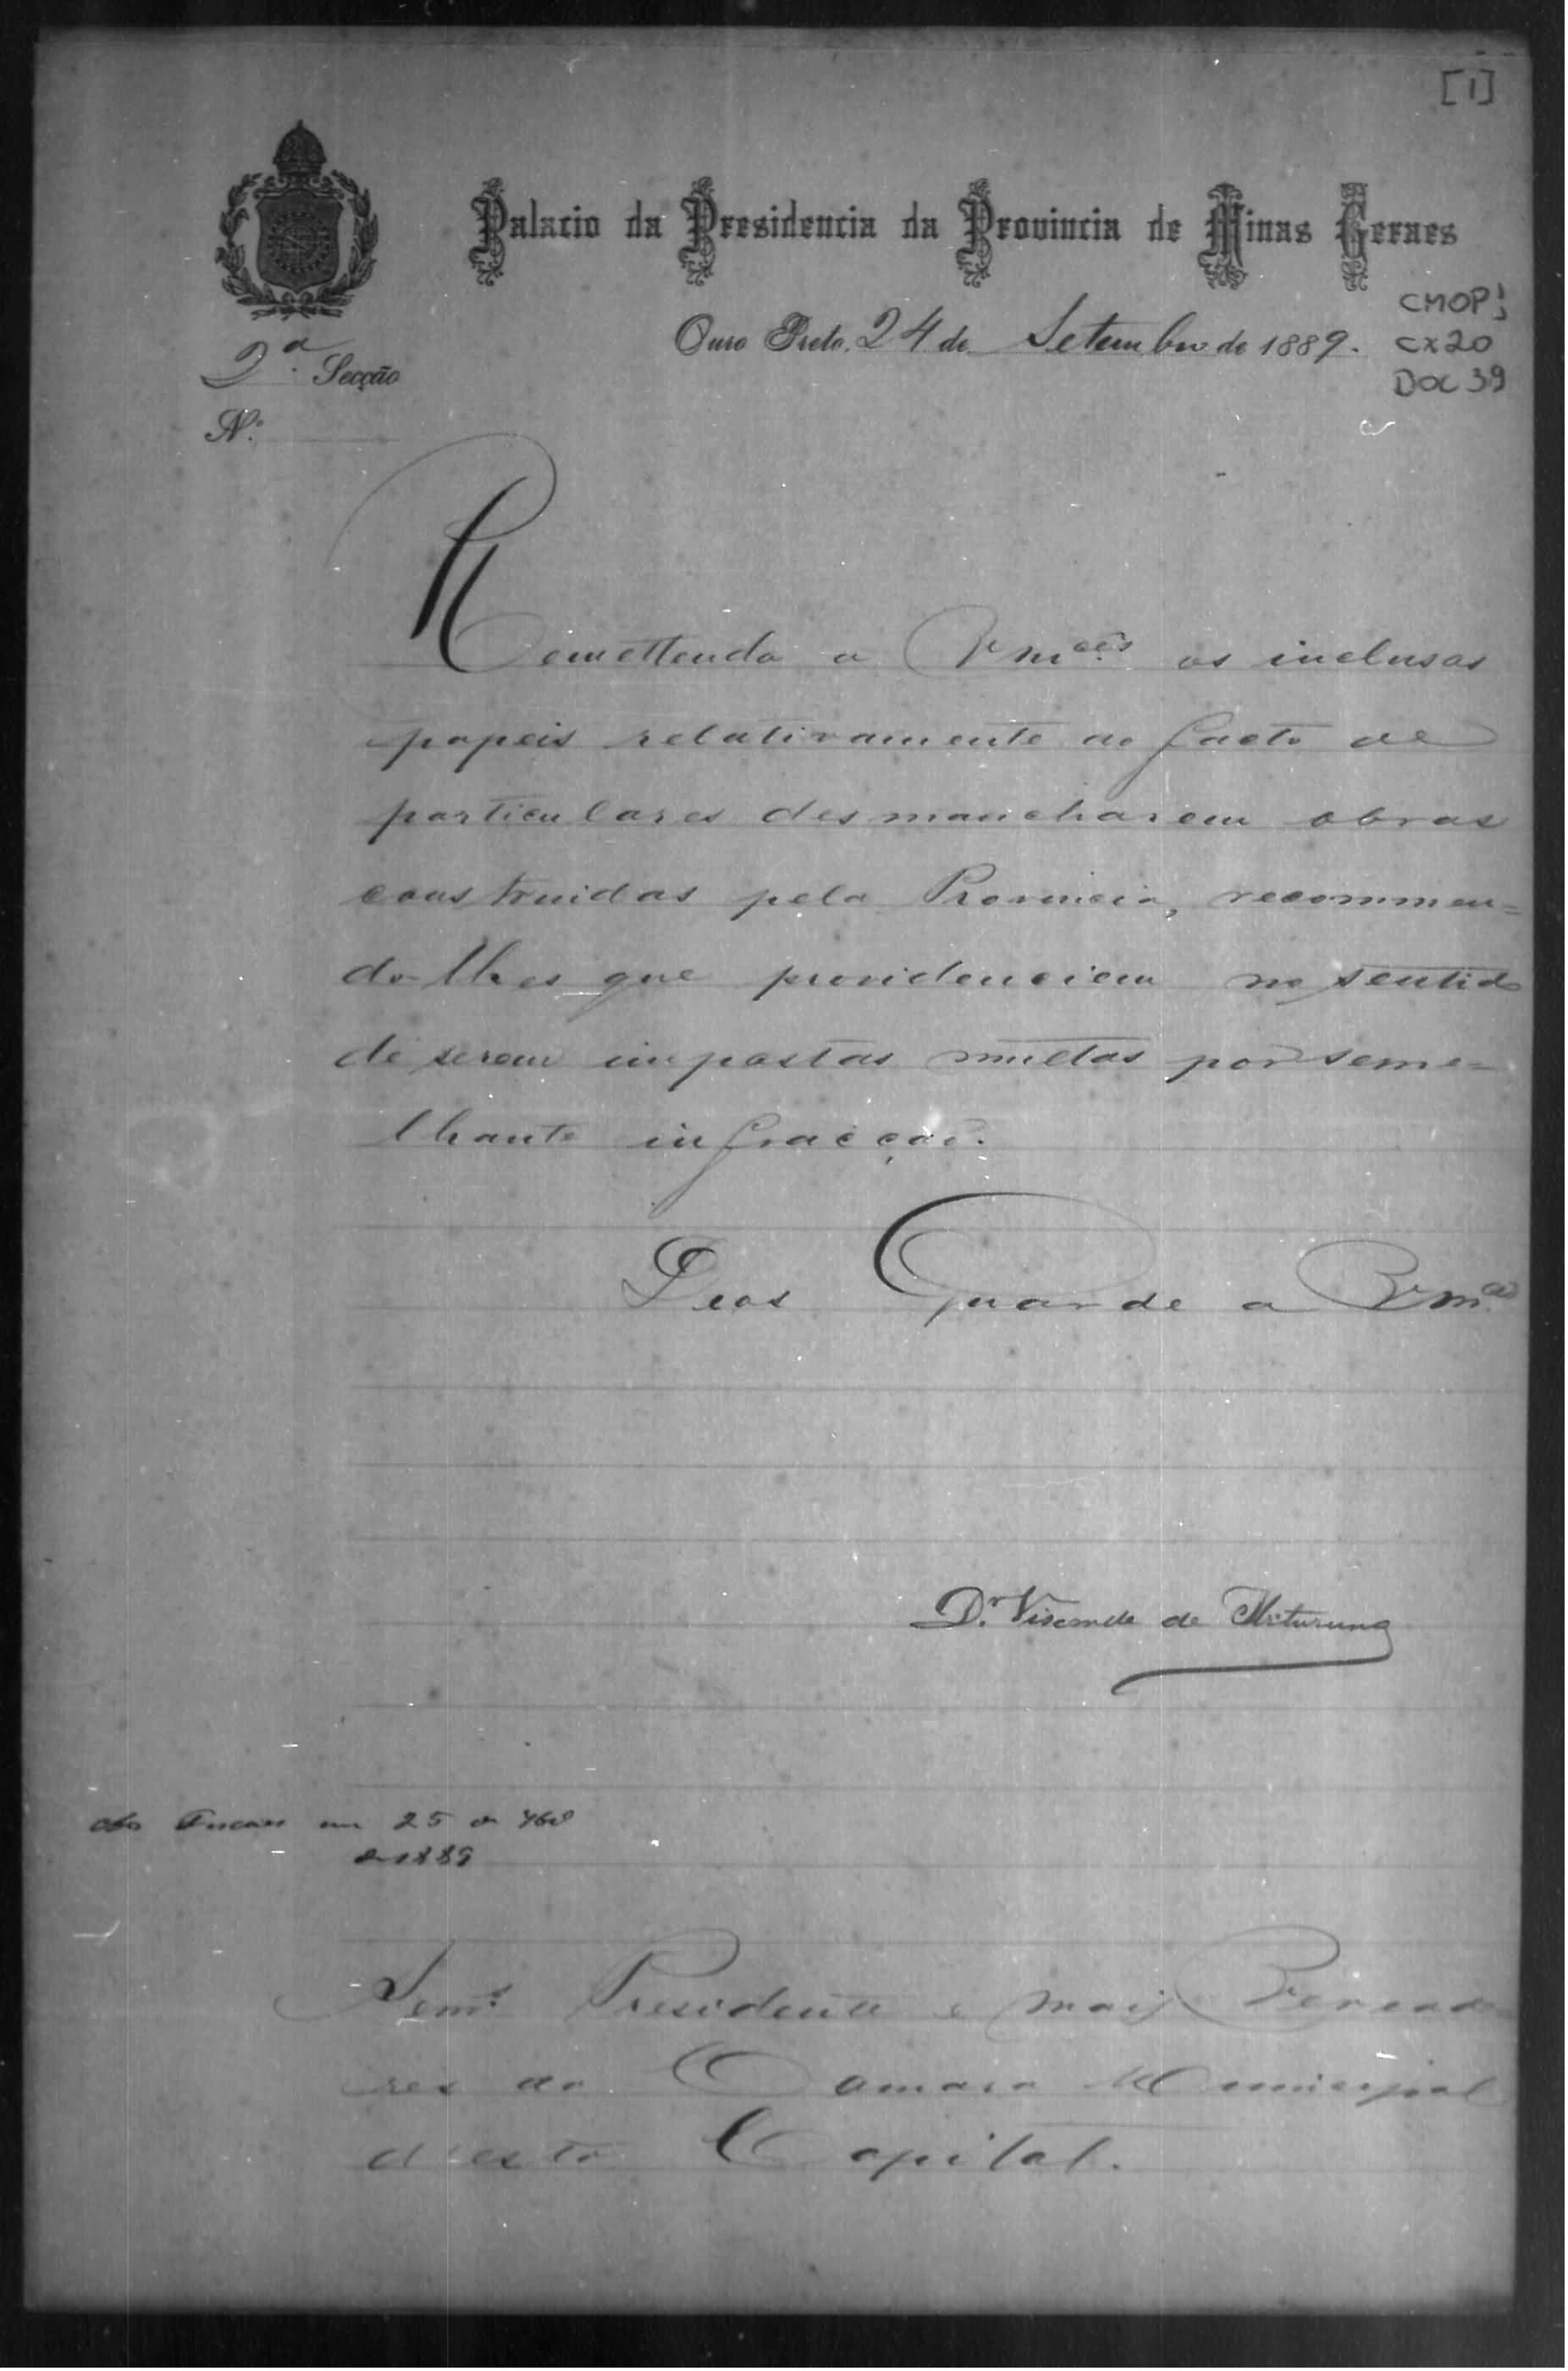 [1]
Palacio da Presidencia da Provincia de Minas Geraes
CMOP
Ouro Preto, 24 de Setembro de 1889.
CX20
DOC 39
2ª Secção
N.º
Remettendo a Vmcês os inclusos
papeis relativamente ao facto de
particulares desmancharem obras
construidas pela Provincia, recommen=
do-lhes que providenciem no sentido
de serem impostas multas por seme=
lhante infracção.
Deos Guarde a Vmcês
Dr. Visconde de Ibituruna
em 25 de 7bro
de 1889
Senrs. Presidente e mais Vereado=
res da Camara Municipal
desta Capital.